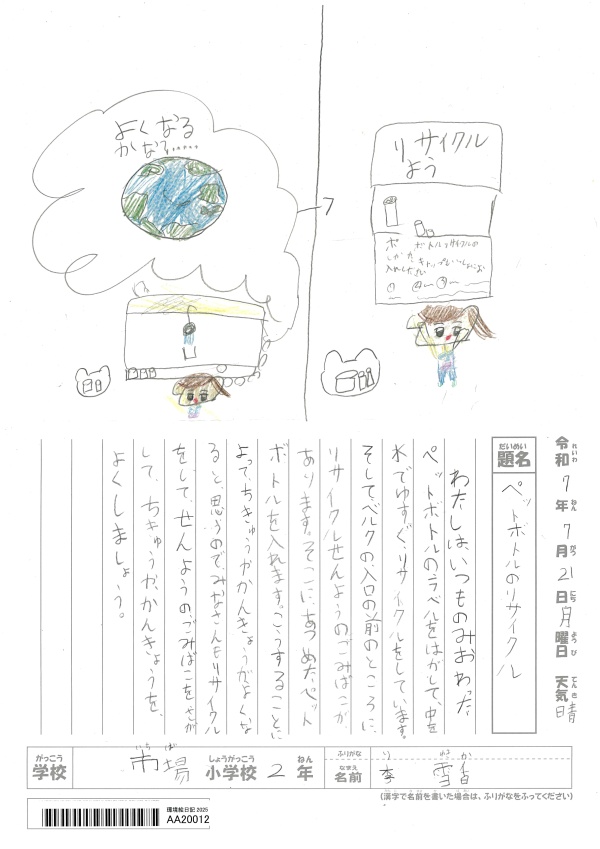 よくなる
かな?……
リサイクル
よう
令和7年7月21日月曜日 天気晴
れいわ ねん がつ にち ようび てんき
だいめい
題名
ペットボトルのリサイクル
わたしは、いつものみおわった
ペットボトルのラベルをはがして、中を
水でゆすぐ、リサイクルをしています。
そして、ベルクの、入口の前のところに、
リサイクルせんようのごみばこが
あります。そこに、あつめた、ペット
ボトルを入れます。こうすることに
よってちきゅうがかんきょうがよくな
ると、思うので、みなさんもリサイクル
をして、せんようのごみばこをさが
して、ちきゅうが、かんきょうを、
よくしましょう。
がっこう
学校
いち ば
市場
しょうがっこう
小学校
2
ねん
年
ふりがな
り
なまえ
名前
李 雪香
(漢字で名前を書いた場合は、ふりがなをふってください)
環境絵日記 2025
AA20012